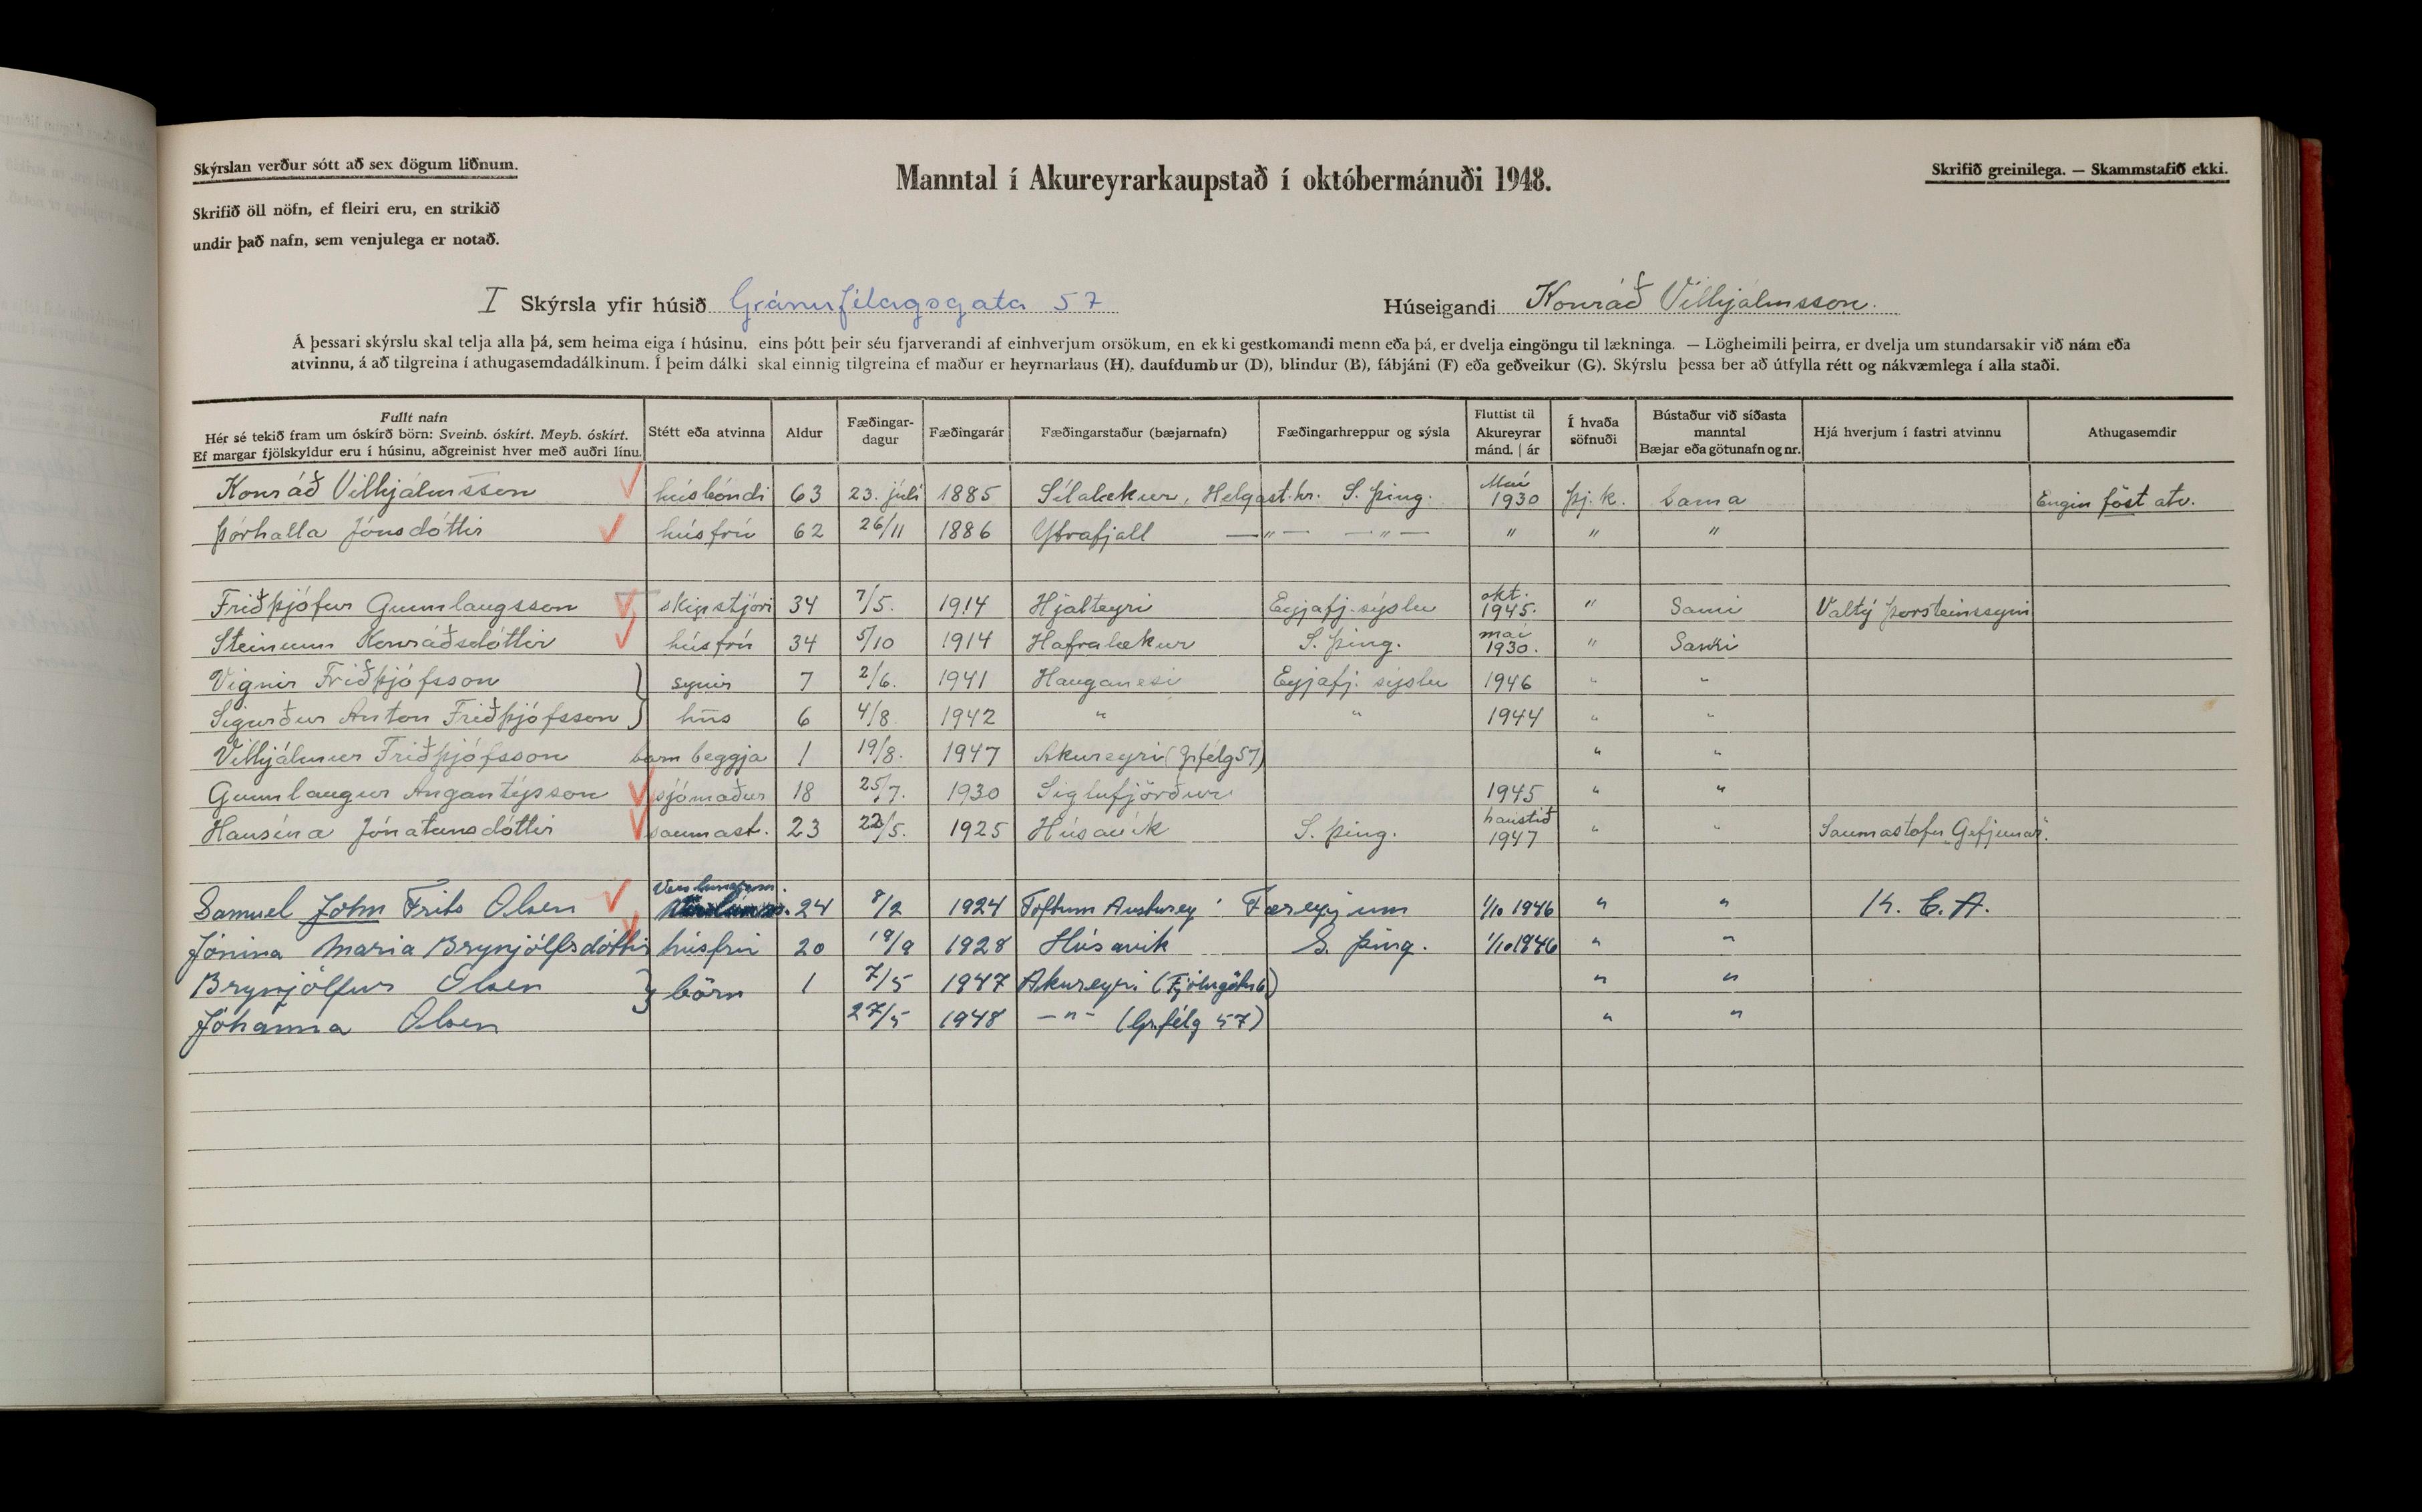 Skýrslan verður sótt að sex dögum liðnum.
Manntal í Akureyrarkaupstað í októbermánuði 1948.
Skrifið greinilega. — Skammstafið ekki.
Skrifið öll nöfn, ef fleiri eru, en strikið
undir það nafn, sem venjulega er notað.
I Skýrsla yfir húsið Gránufélagsgata 57 Húseigandi Konráð Vilhjálmsson.
Á þessari skýrslu skal telja alla þá, sem heima eiga í húsinu, eins þótt þeir séu fjarverandi af einhverjum orsökum, en ekki gestkomandi menn eða þá, er dvelja eingöngu til lækninga. — Lögheimili þeirra, er dvelja um stundarsakir við nám eða
atvinnu, á að tilgreina í athugasemdadálkinum. Í þeim dálki skal einnig tilgreina ef maður er heyrnarlaus (H), daufdumbur (D), blindur (B), fábjáni (F) eða geðveikur (G). Skýrslu þessa ber að útfylla rétt og nákvæmlega í alla staði.
Fullt nafn
Hér sé tekið fram um óskírð börn: Sveinb. óskírt. Meyb. óskírt.
Ef margar fjölskyldur eru í húsinu, aðgreinist hver með auðri línu.
Stétt eða atvinna
Aldur
Fæðingar-
dagur
Fæðingarár
Fæðingarstaður (bæjarnafn)
Fæðingarhreppur og sýsla
Fluttist til
Akureyrar
mánd. | ár
Í hvaða
söfnuði
Bústaður við síðasta
manntal
Bæjar eða götunafn og nr.
Hjá hverjum í fastri atvinnu
Athugasemdir
Konráð Vilhjálmsson húsbóndi 63 23. júlí 1885 Sílalækur, Helgast.hr. S. Þing. Maí 1930 Þj.k. Sama Engin föst atv.
Þórhalla Jónsdóttir húsfrú 62 26/11 1886 Ytrafjall —"— —"— " " "
Friðþjófur Gunnlaugsson skipstjóri 34 7/5. 1914 Hjalteyri Eyjafj.sýslu okt. 1945. " Sami Valtý Þorsteinssyni
Steinunn Konráðsdóttir húsfrú 34 5/10 1914 Hafralækur S. Þing. maí 1930. " Sami
Vignir Friðþjófsson } synir 7 2/6. 1941 Hauganesi Eyjafj. sýslu 1946 " "
Sigurður Anton Friðþjófsson } hús 6 4/8 1942 " " 1944 " "
Vilhjálmur Friðþjófsson barn beggja 1 19/8. 1947 Akureyri (Grfélg 57) " "
Gunnlaugur Angantýsson sjómaður 18 25/7. 1930 Siglufjörður 1945 " "
Hansína Jónatansdóttir saumast. 23 22/5. 1925 Húsavík S. Þing. haustið 1947 " " Saumastofu Gefjunar.
Samuel John Frits Olsen 24 8/2 1924 Toftum Austurey Færeyjum 1/10 1946 " " K. E. A.
Jónina Maria Brynjólfsdóttir húsfrú 20 19/9 1928 Húsavik S. Þing. 1/10 1946 " "
Brynjólfur Olsen } börn 1 7/5 1947 Akureyri " "
Jóhanna Olsen 27/5 1948 —"— (Grfélg 57) " "